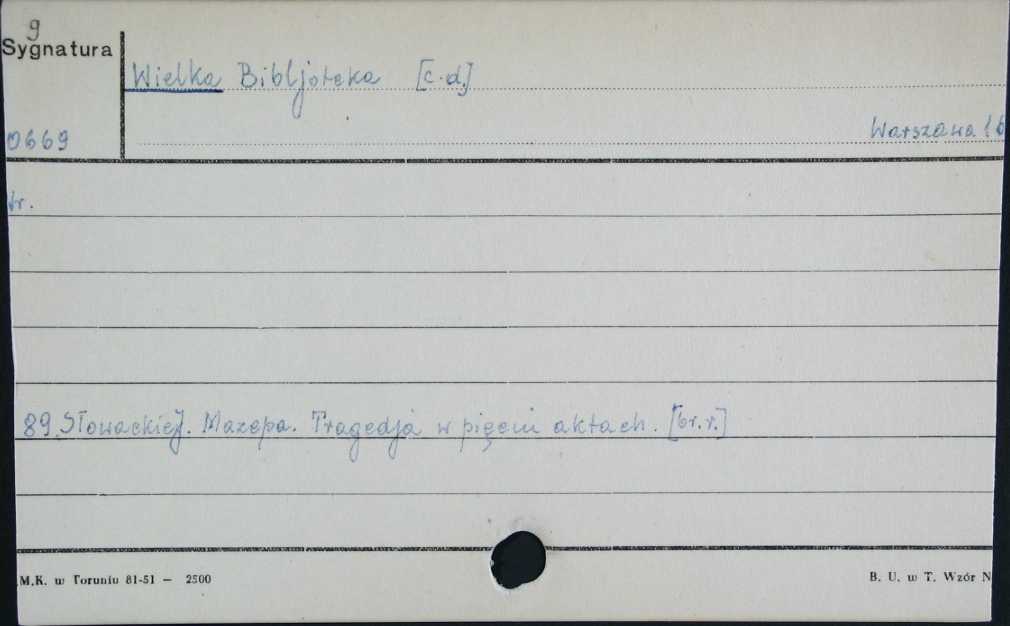 9
Sygnatura
Wielka Bibljoteka [c.d.]
0669
Warszawa
tr.
89. Słowacki J. Mazepa. Tragedja w pięciu aktach. [br.r.]
M.K. w Toruniu 81-51 — 2500
B. U. w T. Wzór N